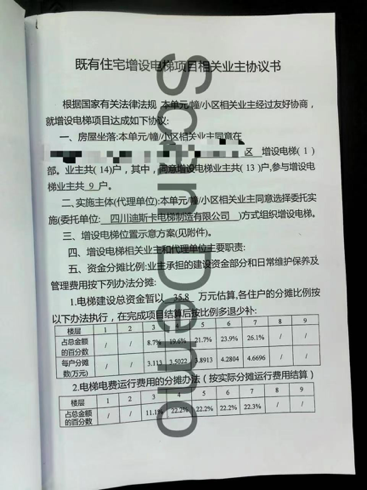 既有住宅增设电梯项目相关业主协议书
根据国家有关法律法规 本单元/幢/小区相关业主经过友好协商，
就增设电梯项目达成如下协议:
一、房屋坐落:本单元/幢/小区相关业主同意在
区 增设电梯( 1 )
部。业主共( 14)户，其中，同意增设电梯业主共( 13 )户,参与增设电
梯业主共 9 户。
二、实施主体(代理单位):本单元/幢/小区相关业主同意选择委托实
施(委托单位: 四川迪斯卡电梯制造有限公司 )方式组织增设电梯。
三、增设电梯位置示意方案(见附件)。
四、增设电梯相关业主和代理单位主要职责:
五、资金分摊比例:业主承担的建设资金部分和日常维护保养及
管理费用按下列办法分摊:
1.电梯建设总资金暂以 35.8 万元估算,各住户的分摊比例按
以下办法执行，在完成项目结算后按比例多退少补:
楼层 1 2 3 4 5 6 7 8 9
占总金额的百分数 / / 8.7% 19.6% 21.7% 23.9% 26.1% / /
每户分摊数(万元) / / 3.113 3.5022 3.8913 4.2804 4.6696 / /
2.电梯电费运行费用的分摊办法（按实际分摊运行费用结算）
楼层 1 2 3 4 5 6 7 8 9
占总金额的百分数 / / 11.1% 22.2% 22.2% 22.2% 22.3% / /
ScanDemo